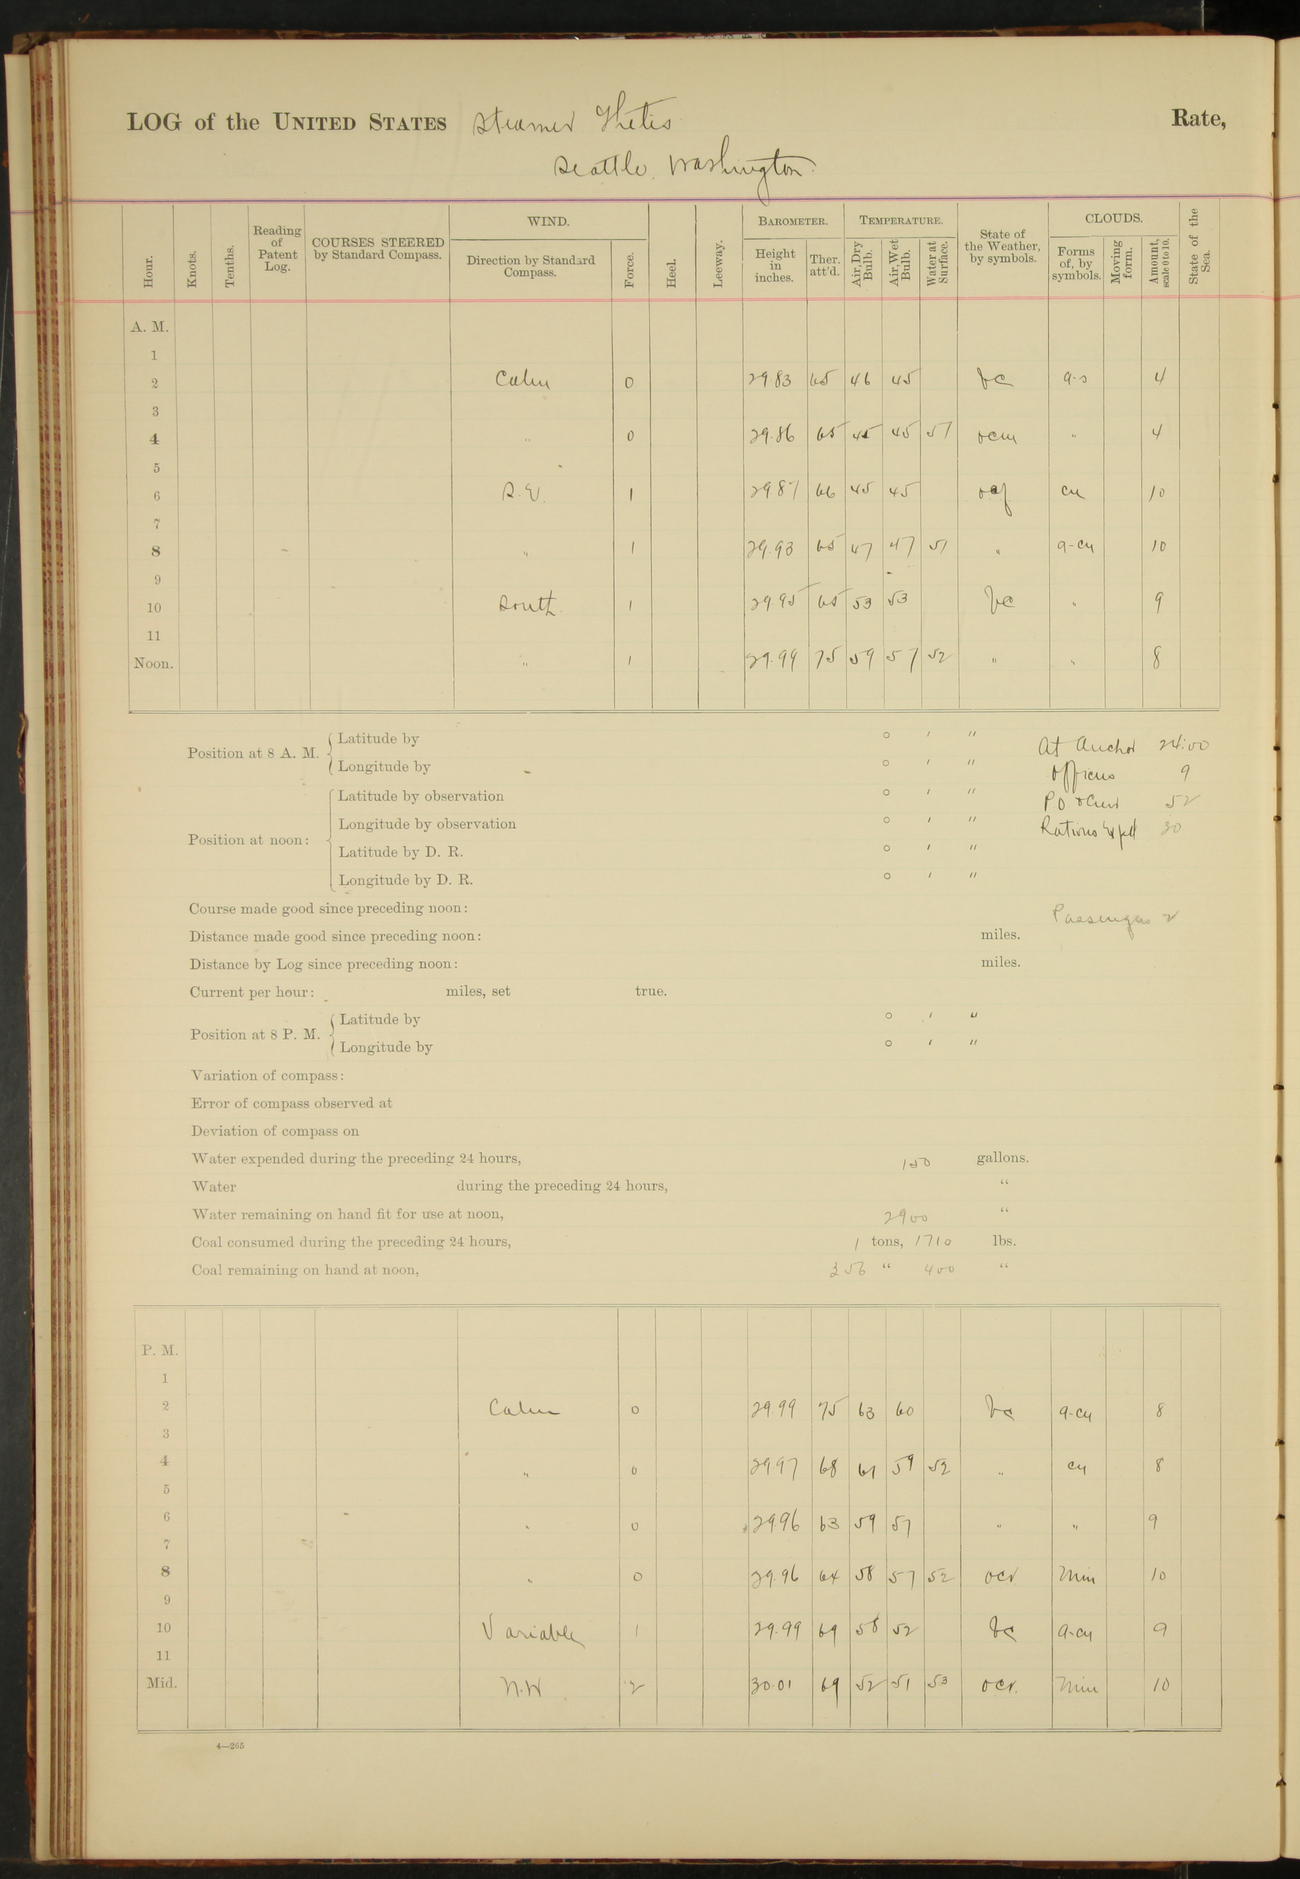 LOG of the UNITED STATES Steamer Thetis Rate,
Seattle, Washington.
Hour. Knots. Tenths. Reading of Patent Log. COURSES STEERED by Standard Compass. WIND. Direction by Standard Compass. Force. Heel. Leeway. BAROMETER. Height in inches. Ther. att'd. TEMPERATURE. Air, Dry Bulb. Air, Wet Bulb. Water at Surface. State of the Weather, by symbols. CLOUDS. Forms of, by symbols. Moving form. Amount, scale 0 to 10. State of the Sea.
A. M.
1
2 Calm 0 29.83 65 46 45 bc a-s 4
3
4 " 0 29.86 65 45 45 51 ocm " 4
5
6 S.E. 1 29.87 66 45 45 cu 10
7
8 " 1 29.93 65 47 47 51 " a-cu 10
9
10 South 1 29.95 65 53 53 bc " 9
11
Noon. " 1 29.99 75 59 57 52 " " 8
Position at 8 A. M. Latitude by ° ′ ″ At Anchor 24:00
Longitude by ° ′ ″ Officers 9
Position at noon: Latitude by observation ° ′ ″ P O & Crew 52
Longitude by observation ° ′ ″ Rations Expd 30
Latitude by D. R. ° ′ ″
Longitude by D. R. ° ′ ″
Course made good since preceding noon: Passengers 2
Distance made good since preceding noon: miles.
Distance by Log since preceding noon: miles.
Current per hour: miles, set true.
Position at 8 P. M. Latitude by ° ′ ″
Longitude by ° ′ ″
Variation of compass:
Error of compass observed at
Deviation of compass on
Water expended during the preceding 24 hours, 150 gallons.
Water during the preceding 24 hours, "
Water remaining on hand fit for use at noon, 2900 "
Coal consumed during the preceding 24 hours, 1 tons, 1710 lbs.
Coal remaining on hand at noon, 356 " 400 "
P. M.
1
2 Calm 0 29.99 75 63 60 bc a-cu 8
3
4 " 0 29.97 68 61 59 52 " cu 8
5
6 " 0 29.96 63 59 57 " " 9
7
8 " 0 29.96 64 58 57 52 ocr Nim 10
9
10 Variable 1 29.99 69 58 52 bc a-cu 9
11
Mid. N.W 2 30.01 69 52 51 53 ocr. Nim 10
4—265